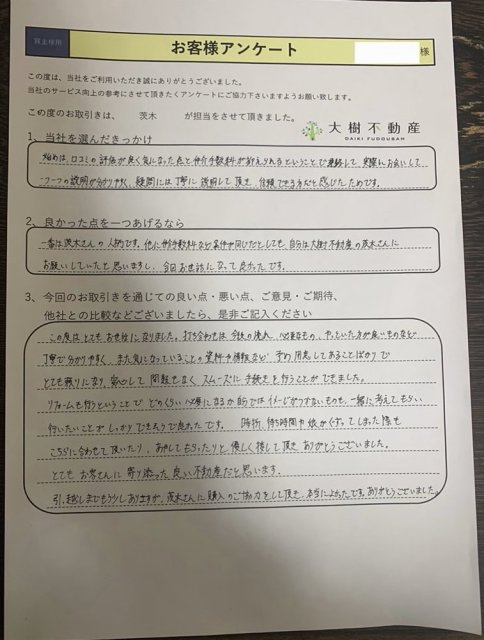 買主様用
お客様アンケート
様
この度は、当社をご利用いただき誠にありがとうございました。
当社のサービス向上の参考にさせて頂きたくアンケートにご協力下さいますようお願い致します。
この度のお取引きは、 茨木 が担当をさせて頂きました。
大樹不動産
DAIKI FUDOUSAN
1、当社を選んだきっかけ
始めは、口コミの評価が良く気になった点と仲介手数料が抑えられるということで連絡して、実際にお会いして
一つ一つの説明が分かりやすく、疑問には丁寧に説明して頂き、信頼できる方だと感じたためです。
2、良かった点を一つあげるなら
一番は茨木さんの人柄です。他に仲介手数料など条件が同じだとしても、自分は大樹不動産の茨木さんに
お願いしていたと思いますし、今回お世話になって良かったです。
3、今回のお取引きを通じての良い点・悪い点、ご意見・ご期待、
他社との比較などございましたら、是非ご記入ください
この度はとてもお世話になりました。打ち合わせは今後の流れ、必要なもの、やっといた方が良いものなど
丁寧で分かりやすく、また気になっていることの資料や情報など、予め用意してあることばかりで
とても頼りになり、安心して問題もなくスムーズに手続きを行うことができました。
リフォームも行うということでどのくらい必要になるか自分ではイメージがつかないものも、一緒に考えてもらい
行いたいことがしっかりできそうで良かったです。 時折、待ち時間で娘がぐずってしまった際も
こちらに合わせて頂いたり、あやしてもらったりと優しく接して頂きありがとうございました。
とてもお客さんに寄り添った良い不動産だと思います。
引っ越しまでもう少しありますが、茨木さんに購入のご協力をして頂き、本当によかったです。ありがとうございました。